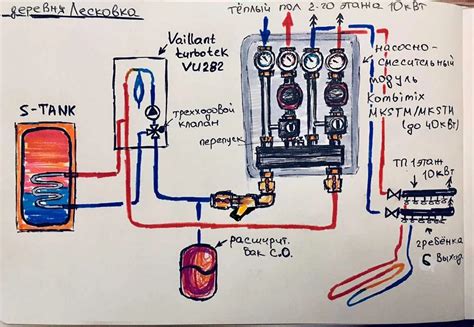 деревня Лесковка
Vaillant
turbotek
VU282
S-TANK
трехходовой
клапан
тёплый пол 2-го этажа 10кВт
насосно-
смесительный
модуль
Kombimix
MKSTM/MKSTH
(до 40кВт)
перепуск
ТП 1этаж
10кВт
гребёнка
6 выход.
расширит.
бак С.О.